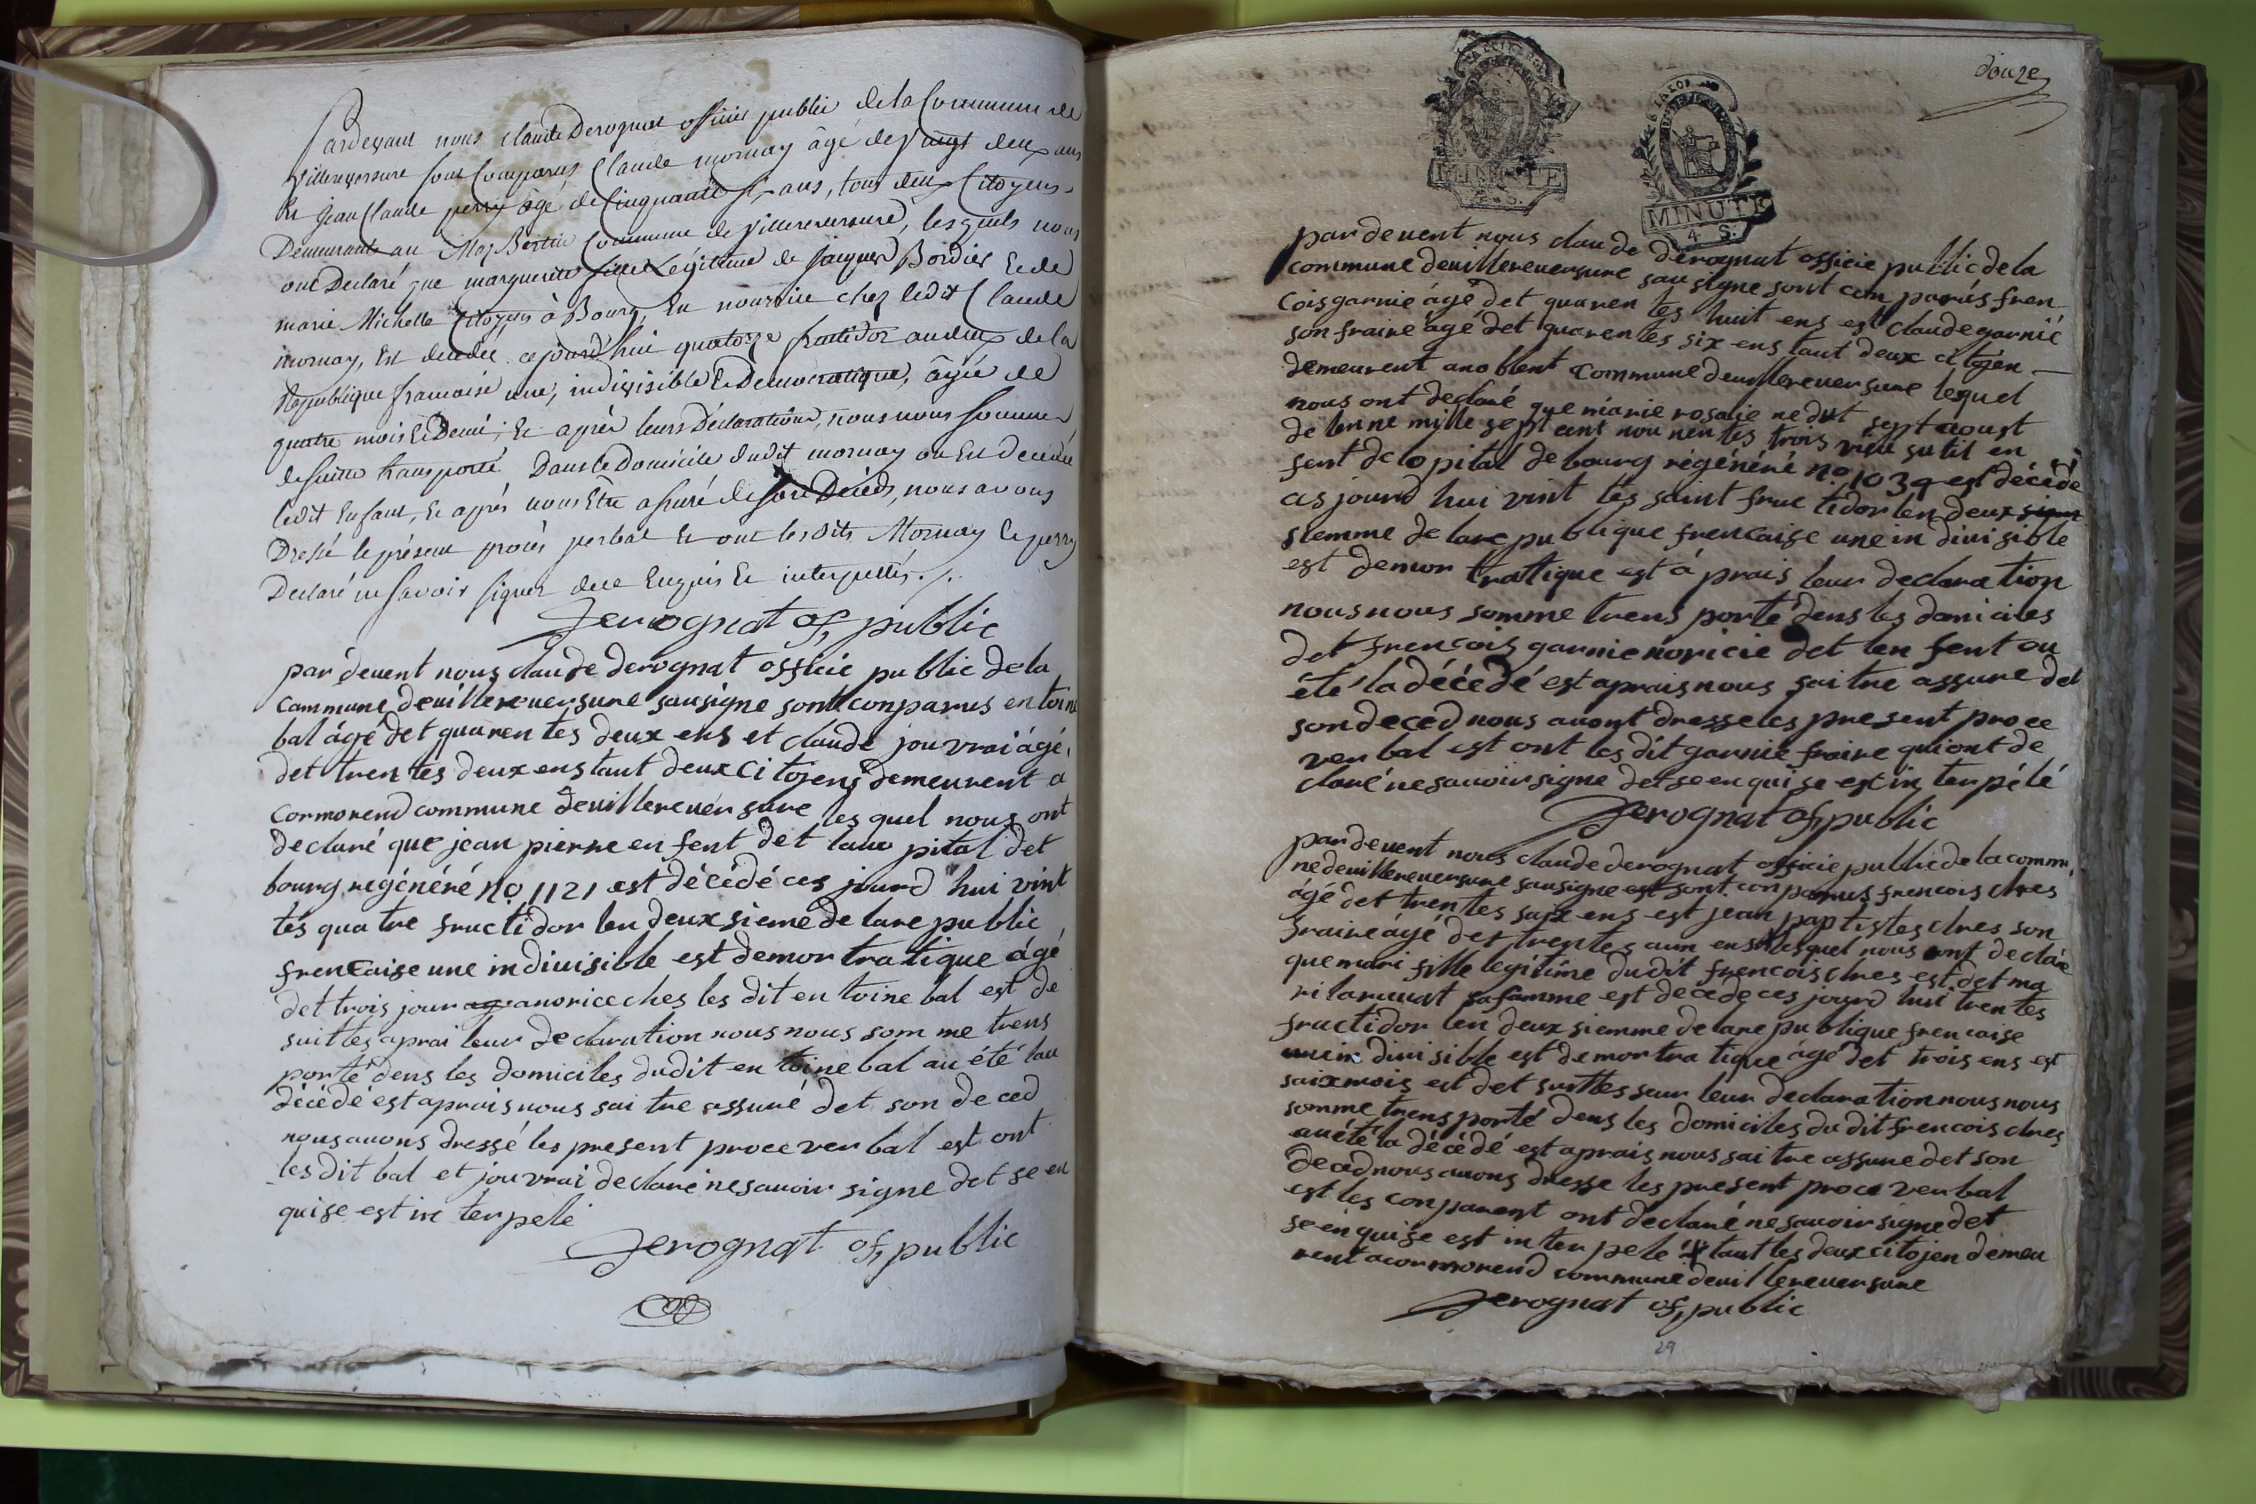 Pardevant nous Claude Derognat officier public de la Commune de
Villereversure sont Comparus Claude mornay âgé de Vingt deux ans
Et Jean Claude perry âgé de Cinquante ans, tous deux Citoyens
Demeurants au Mas Bertin Commune de Villereversure, lesquels nous
ont Declaré que marguerite fille Légitime de Jacques Bordier Et de
marie Michelle Citoyens à Bourg, En nourrice chez ledit Claude
mornay, Est decedée cejourd'hui quatorze fructidor an deux de la
République francaise une, indivisible Et Democratique, âgée de
quatre mois Et Demi; Et après leurs Déclarations, nous nous sommes
de suite transporté Dans le Domicile dudit mornay ou Est Decedé
ledit Enfant, Et après nous Etre assuré de son Décéds, nous avons
Dressé le présent procès verbal Et ont lesdits Mornay Et perry
Declaré ne savoir signer de ce Enquis Et interpellés ./.
Derognat of, public
par devent nous claude derognat officie public de la
commune deuillereuersure sousigne sont conparus entoine
bal ágé det quarentes deux ens et claude jouvrai ágé
det trentes deux ens taut deux citojens demeurent a
cormorend commune deuillereuersure les quel nous ont
declaré que jean pierre en fent det lauo pital det
bourg régénéré no 1121 est décédé ces jourd hui vint
tés quatre fructidor len deuxsieme de lare public
frencaise une indiuisible est demortratique ágé
det trois jour ag anorice ches les dit entoine bal est de
suittes aprai leur declaration nous nous somme trens
porté dens les domiciles dudit en toine bal au été lau
décédé est aprais nous sai tre assuré det son deced
nous auons dressé les present proce ver bal est ont
les dit bal et jouvrai declaré ne sauoir signe det se en
quise est in terpelé
Derognat of, public
douze
MINUTE
MINUTE
4. S.
par deuent nous claude derognat officie public de la
commune deuillereuersure sousigne sont con parus fren
cois garnie ágé det quarentes huit ens est claude garnié
son fraire ágé det quarentes six ens taut deux citojen
demeurent anoblent commune deuillereuersure lequel
nous ont declaré que marie rosalie ne dut sept aoust
de lenne mille sept cent nou nentes trois en
fent de lopital de bourg régénéré no. 1039 est décédé
ces jourd hui vint tes saint fruc tidor len deux
siemme de lare publique frencaise une in diuisible
est demortratique est á prais leur declaration
nous nous somme trens porté dens les domiciles
det frencois garnie noricie det len fent ou
été la décédé est aprais nous sai tre assure det
son deced nous auont dresse les present proce
ver bal est ont les dit garnie fraire qui ont de
claré ne sauoir signe det se en quise est in terpélé
Derognat of, public
par deuent nous claude derognat officie public de la commu
ne deuillereuersure sousigne est sont conparus frencois clres
agé det trentes saix ens est jean paptistes clres son
fraire ágé det trentes aun ens lesquel nous ont declare
que mari fille legitime dudit frencois clres est det ma
ri laruuat sa famme est decede ces jourd hui trentes
fructidor len deuxsiemme de lare publique frencaise
une in diuisible est demortratique ágé det trois ens est
saix mois est det suittes saur leur declaration nous nous
somme trens porté dens les domiciles du dit frencois clres
au été la décédé est aprais nous sai tre assure det son
deced nous auons dresse les present proce verbal
est les conparent ont declaré ne sauoir signe det
se en quise est in ter pele taut les deux citojen demeu
rent a cormorend commune deuillereuersure
Derognat of, public
29